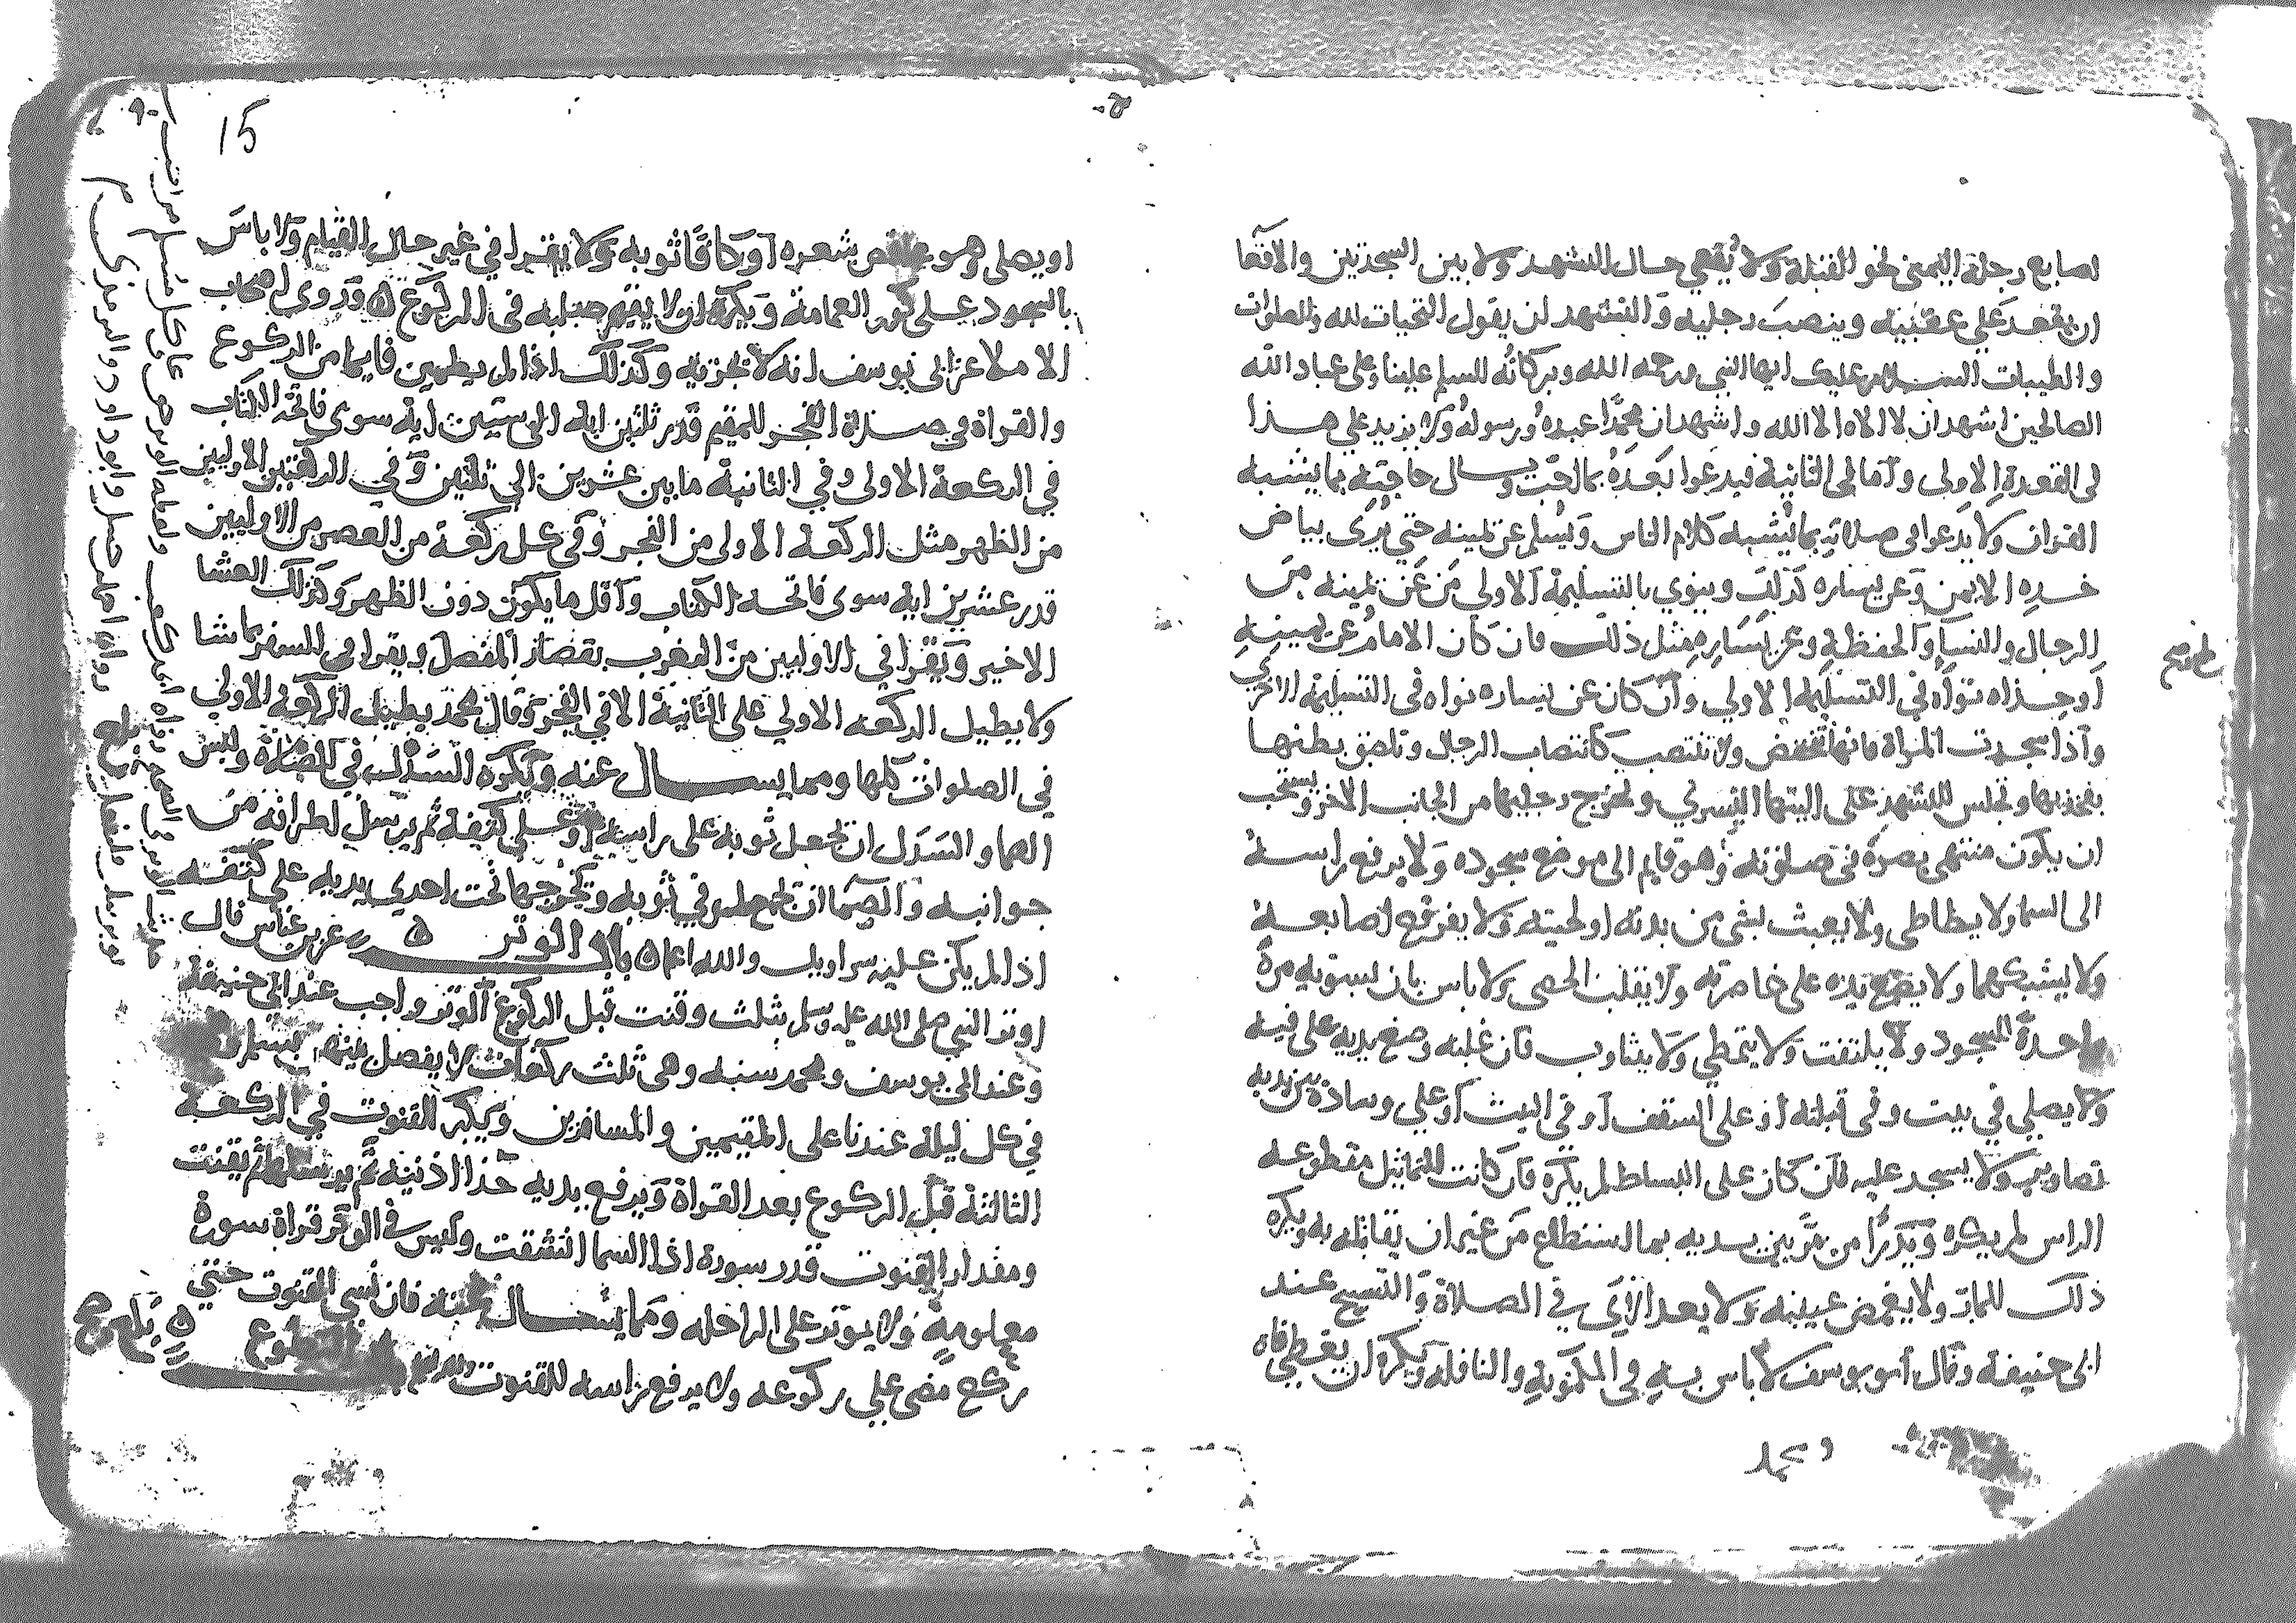 اصابع رجله اليمنى نحو القبلة ولا يقعي حال التشهد ولا بين السجدتين والاقعا
ان يقعد على عقبيه وينصب رجليه والتشهد ان يقول التحيات لله والصلوات
والطيبات السلام عليك ايها النبي ورحمه الله وبركاته السلم علينا وعلى عباد الله
الصالحين اشهد ان لا الاه الا الله واشهد ان محمدا عبده ورسوله ولا يزيد على هذا
في القعدة الاولى واما في الثانية فيدعوا بعده بما احب ويسال حاجته بما يشبه
القران ولا يدعوا في صلاته بما يشبه كلام الناس ويسلم عن يمينه حتى يرى بياض
خده الايمن وعن يساره كذلك وينوي بالتسليمة الاولي من عن يمينه من
الرجال والنسا والحفظة وعن يساره مثل ذلك فان كان الامام عن يمينه
او حذاه نواه في التسليمه الاولي وان كان عن يساره نواه في التسليمة الاخرى
واذا سجدت المراة فانها تخفض ولا تنتصب كانتصاب الرجال وتلصق بطنها
بفخذيها وتجلس للتشهد على اليتها اليسرى وتخرج رجليها من الجانب الاخر ويستحب
ان يكون منتهى بصره في صلوته وهو قايم الى موضع سجوده ولا يرفع راسه
الى السما ولا يطاطي ولا يعبث بشي من بدنه او لحيته ولا يفرقع اصابعه
ولا يشبكهما ولا يضع يده على خاصرته ولا يقلب الحصى ولا باس بان يسويه مرة
واحدة للسجود ولا يلتفت ولا يتمطي ولا يثاوب فان غلبه وضع يديه على فيه
ولا يصلي في بيت وفي قبلته او على السقف او في البيت او على وسادة بين يديه
تصاوير ولا يسجد عليه فان كان على البساط لم يكره فان كانت التماثيل مقطوعه
الراس لم يكره ويدرا من مر بين يديه بما استطاع من غير ان يقاتله به ويكره
ذلك للمار ولا يغمض عينيه ولا يعد الآي في الصلاة والتسبيح عند
ابي حنيفة وقال ابو يوسف لا باس به في المكتوبة والنافله ويكره ان يغطي فاه
15
او يصلي وهو عاقص شعره او كافا ثوبه ولا يقرا في غير حال القيام ولا باس
بالسجود على كور العمامة ويكره ان لا يقيم صلبه في الركوع وقد روى اصحاب
الاملا عن ابي يوسف انه لا تجزيه وكذلك اذا لم يطمين قايما من الركوع
والقراة في صلاة الفجر للمقيم قدر ثلثين ايه الى ستين اية سوى فاتحه الكتاب
في الركعة الاولى وفي الثانية ما بين عشرين الى ثلثين وفي الركعتين الاوليين
من الظهر مثل الركعة الاولى من الفجر وفي كل ركعة من العصر من الاوليين
قدر عشرين اية سوى فاتحه الكتاب واقل ما يكون دون الظهر وكذلك العشا
الاخير ويقرا في الاوليين من المغرب بقصار المفصل ويقرا في السفر بما شا
ولا يطيل الركعه الاولي على الثانية الا في الفجر وقال محمد يطيل الركعة الاولي
في الصلوات كلها ومما يسال عنه ويكره السدل في الصلاة ولبس
الصما والسدل ان يجعل ثوبه على راسه او على كتفه ثم يرسل اطرافه من
جوانبه والصما ان يجمع طرفي ثوبه ويخرجها تحت احدى يديه على كتفه
اذا لم يكن عليه سراويل والله اعلم باب الوتر عن بن عباس قال
اوتر النبي صلى الله عليه وسلم بثلث وقنت قبل الركوع الوتر واجب عند ابي حنيفة
وعند ابي يوسف ومحمد سنه وهي ثلث ركعات لا يفصل بينهن بسلام
في كل ليلة عندنا على المقيمين والمسافرين ويكبر القنوت في الركعة
الثالثة قبل الركوع بعد القراة ويرفع يديه حذا اذنيه ثم يرسلهما ثم يقنت
ومقدار القنوت قدر سورة اذا السما انشقت وليس في الوتر قراة سورة
معلومة ولا يوتر على الراحله ومما يسال عنه فان نسي القنوت حتى
ركع مضى على ركوعه ولا يرفع راسه للقنوت التطوع